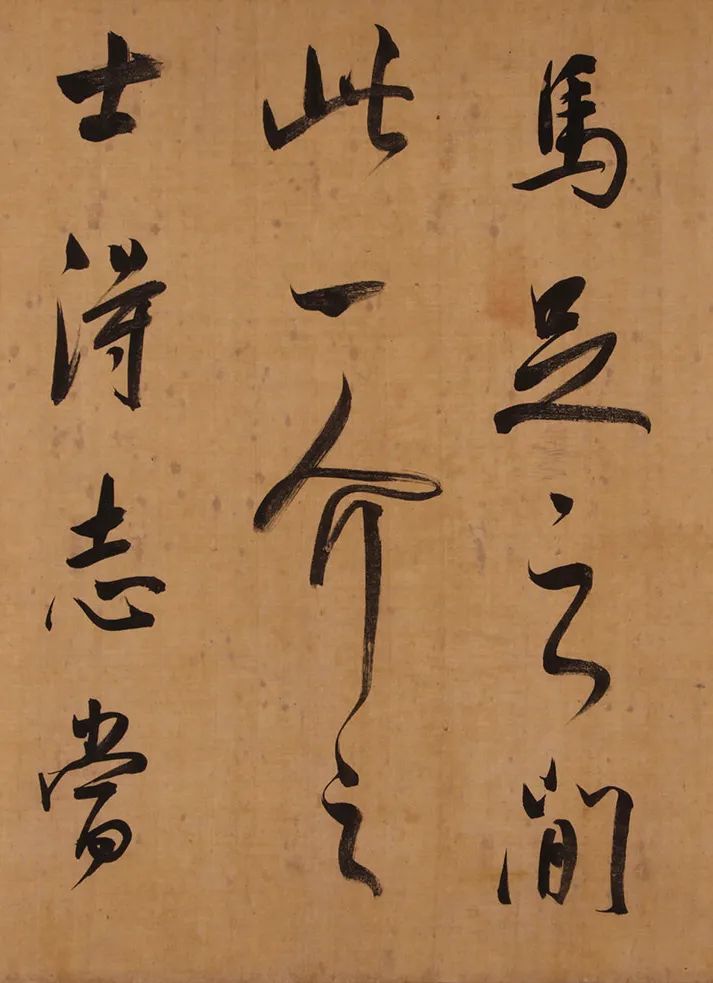 馬足之間
此一介之
士得志當